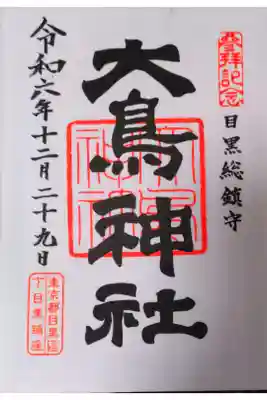 参拝記念
目黒総鎮守
大鳥神社
令和六年十二月二十九日
東京都目黒区